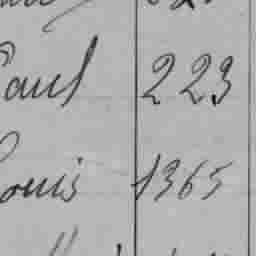 Paul 223
Louis 1365